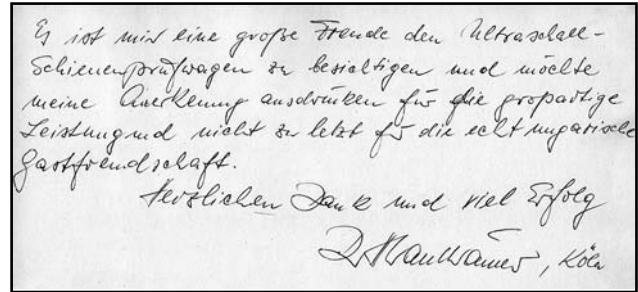 Es ist mir eine große Freude den Ultraschall-
Schienenprüfwagen zu besichtigen und möchte
meine Anerkennung ausdrücken für die großartige
Leistung und nicht zu letzt für die echt ungarische
Gastfreundschaft.
Herzlichen Dank und viel Erfolg
, Köln